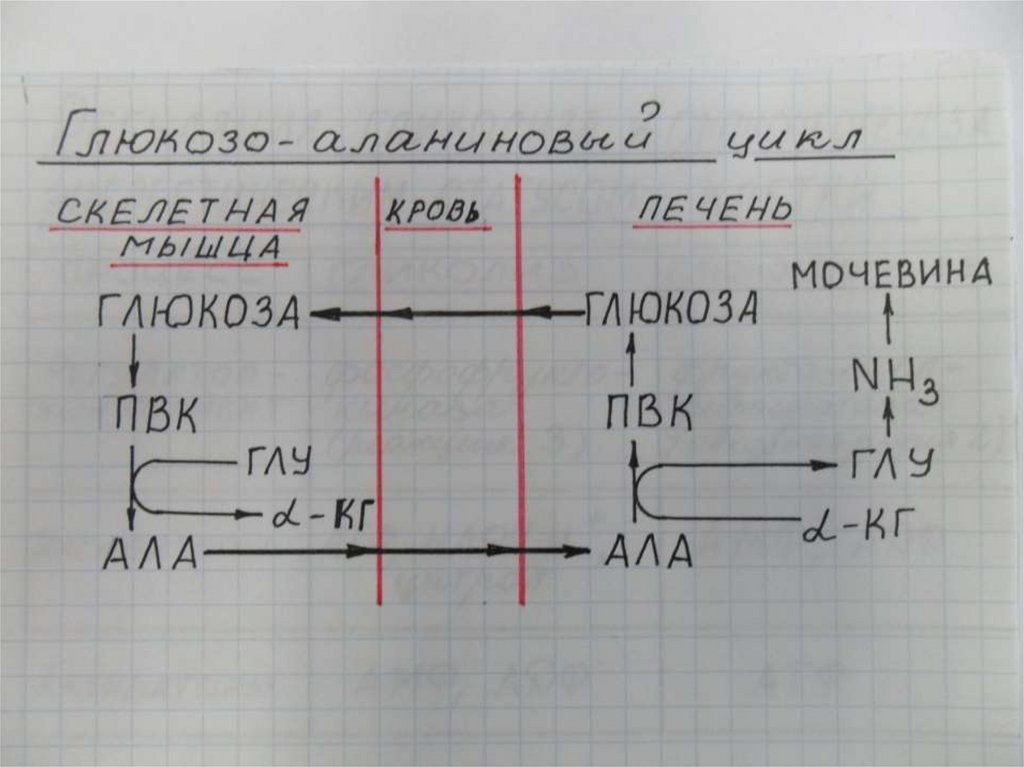 Глюкозо-аланиновый цикл
СКЕЛЕТНАЯ МЫШЦА
КРОВЬ
ПЕЧЕНЬ
МОЧЕВИНА
ГЛЮКОЗА
ГЛЮКОЗА
NH3
ПВК
ПВК
ГЛУ
ГЛУ
α-КГ
α-КГ
АЛА
АЛА